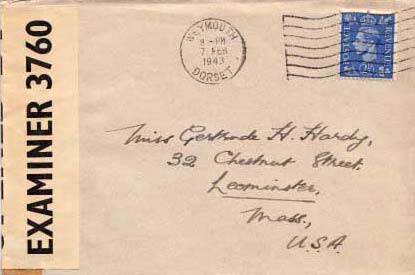 EXAMINER 3760
WEYMOUTH
9-PM
7 FEB
1943
DORSET
POSTAGE
REVENUE
Miss Gertrude H. Hardy,
32 Chestnut Street.
Leominster,
Mass.,
U.S.A